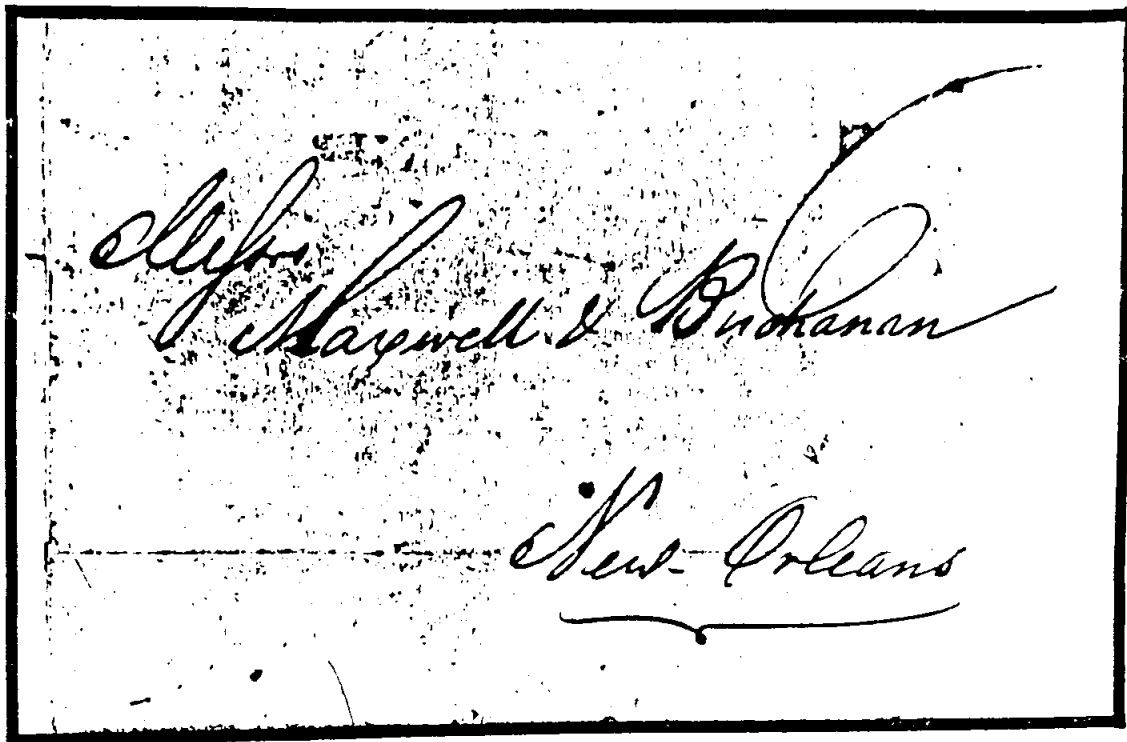 Messrs
Maxwell & Buchanan
New-Orleans